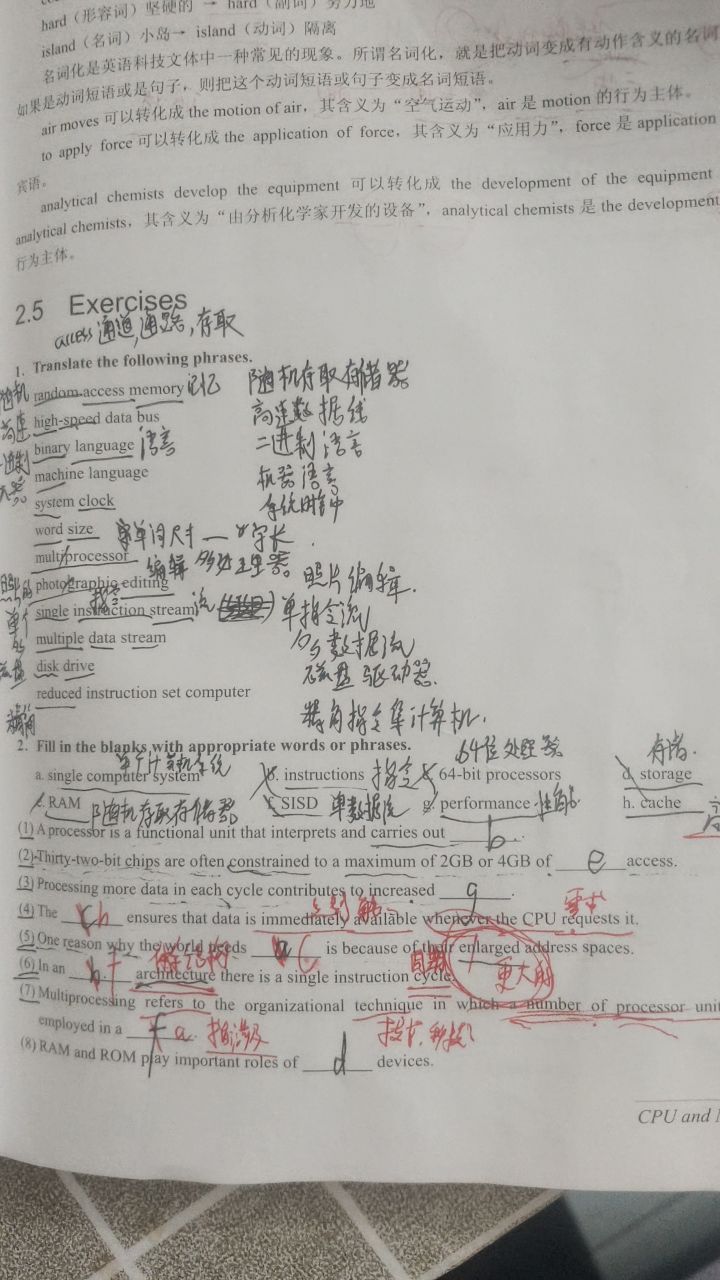 hard（形容词）坚硬的 → hard（副词）努力地
island（名词）小岛→ island（动词）隔离
名词化是英语科技文体中一种常见的现象。所谓名词化，就是把动词变成有动作含义的名词
如果是动词短语或是句子，则把这个动词短语或句子变成名词短语。
air moves 可以转化成 the motion of air，其含义为“空气运动”，air 是 motion 的行为主体。
to apply force 可以转化成 the application of force，其含义为“应用力”，force 是 application
宾语。
analytical chemists develop the equipment 可以转化成 the development of the equipment
analytical chemists，其含义为“由分析化学家开发的设备”，analytical chemists 是 the development
行为主体。
2.5 Exercises
access 通道,通路,存取
1. Translate the following phrases.
随机 random-access memory 记忆 随机存取存储器
高速 high-speed data bus 高速数据线
二进制 binary language 语言 二进制语言
机器 machine language 机器语言
system clock 系统时钟
word size 字单词尺寸 — 字长
multiprocessor 多处理器。
photographic editing 编辑 照片编辑.
单个 single instruction stream 指令 流 单指令流
多 multiple data stream 多数据流
磁盘 disk drive 磁盘驱动器.
reduced instruction set computer 精简指令集计算机.
精简
2. Fill in the blanks with appropriate words or phrases.
单个计算机系统 64位处理器 存储.
a. single computer system b. instructions 指令 c. 64-bit processors d. storage
e. RAM 随机存取存储器 f. SISD 单数据流 g. performance 性能 h. cache
(1) A processor is a functional unit that interprets and carries out b .
(2) Thirty-two-bit chips are often constrained to a maximum of 2GB or 4GB of e access.
(3) Processing more data in each cycle contributes to increased g .
立刻 需求
(4) The h ensures that data is immediately available whenever the CPU requests it.
(5) One reason why the world needs C is because of their enlarged address spaces.
体系结构 周期 更大的
(6) In an f architecture there is a single instruction cycle.
(7) Multiprocessing refers to the organizational technique in which a number of processor unit
employed in a a . 技术,科技
(8) RAM and ROM play important roles of d devices.
CPU and